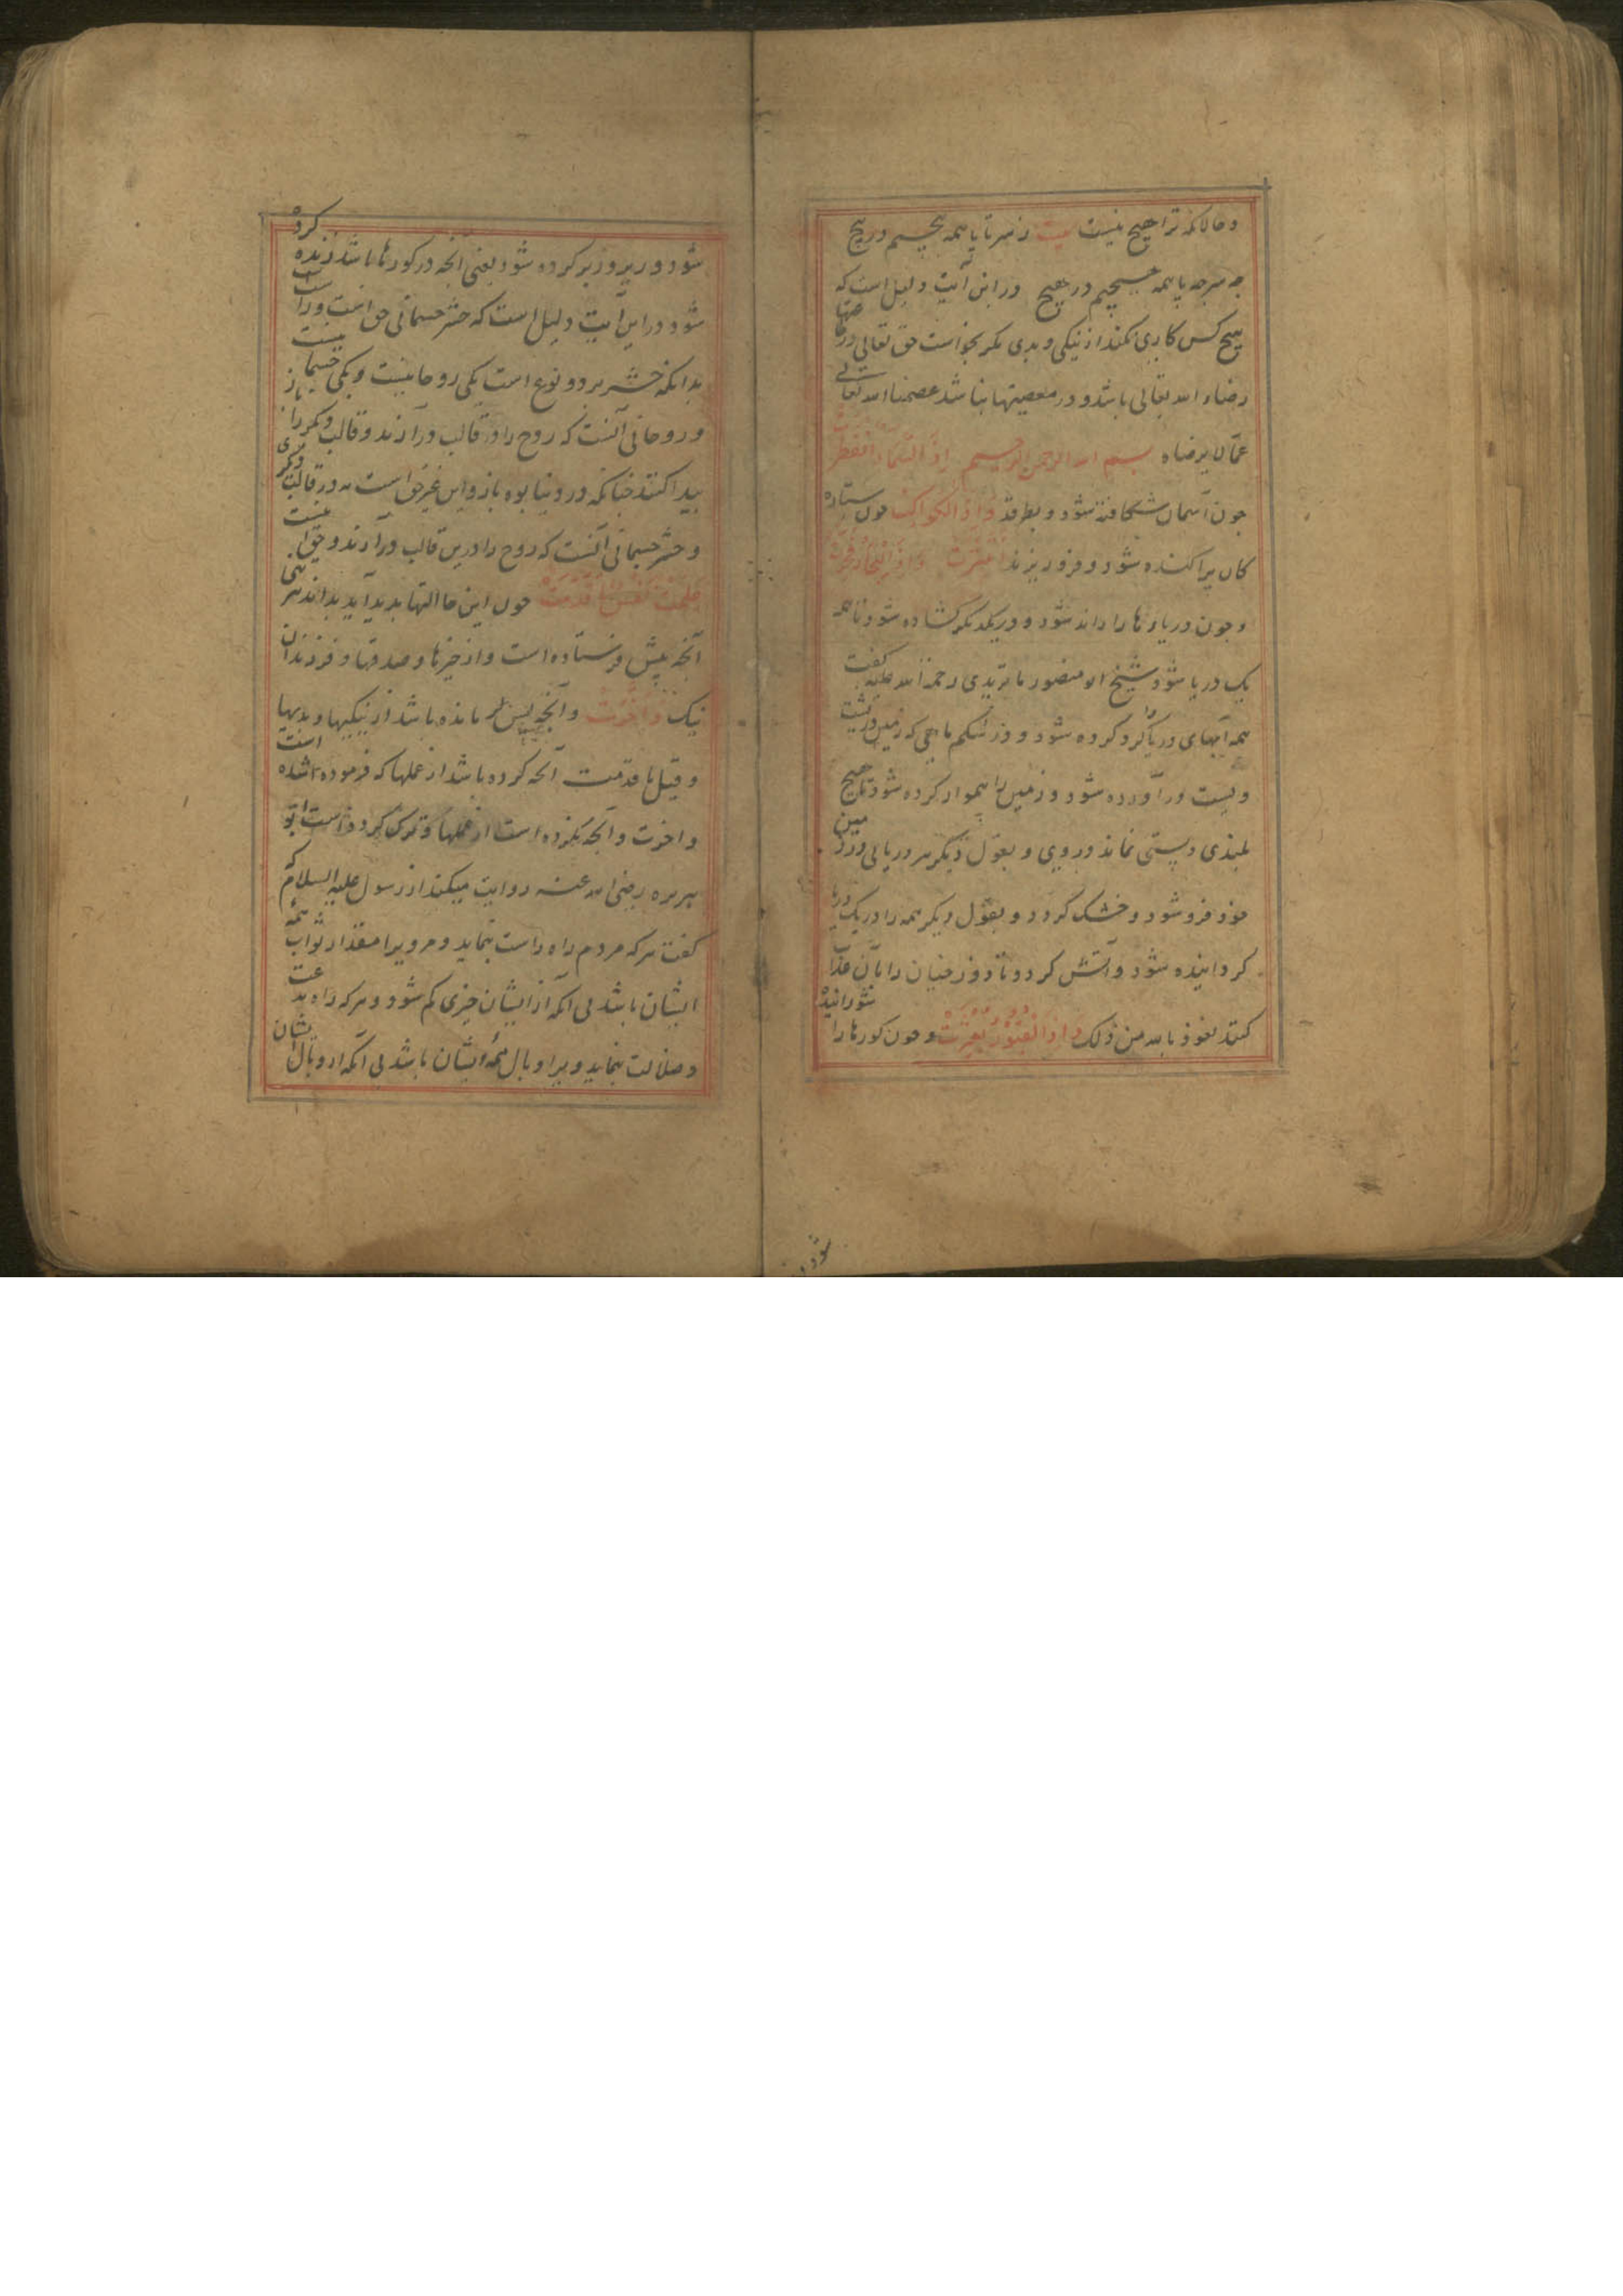 و حالانکه ترا هیچ نیست بیت ز سر تا پا همه هیچیم در هیچ
چه سر چه پا همه هیچیم در هیچ و در این آیت دلیل است که
هیچ کس کاری نکند از نیکی و بدی مکر بخواست حق تعالی در طاعتها
رضاء الله تعالی باشد و در معصیتها نباشد عصمنا الله تعالی
عما لا یرضاه بسم الله الرحمن الرحیم اذا السماء انفطرت
جون آسمان شکافته شود و بطرقد و اذا الکواکب جون ستاره
کان پراکنده شود و فرو ریزند انتثرت و اذا البحار فجرت
و جون دریاها را رانده شود و در یکدیکر کشاده شود تا همه
یک دریا شود شیخ ابو منصور ماتریدی رحمة الله علیه کفت
همه آبهای دریا را کرد کرده شود و در شکم ماهی که زمین در پشت
ویست در آورده شود و زمین را هموار کرده شود تا هیچ
بلندی و پستی نماند در وی و بقول دیکر هر دریایی در زمین
خود فرو شود و خشک کردد و بقول دیکر همه را در یک دریا
کردانیده شود و آتش کردد تا دوزخیان را بآن عذاب
کنند نعوذ بالله من ذلک و اذا القبور بعثرت و جون کورها را شورانیده
شود و زیر و زبر کرده شود یعنی آنجه در کورها باشد زنده کرده
شود و در این آیت دلیل است که حشر جسمانی حق است و راست
بدانکه حشر بر دو نوع است یکی روحانیست و یکی جسمانیست
و روحانی آنست که روح را در قالب در آرند و قالب دیکر را باز
پیدا کنند جنانکه در دنیا بوه باز و این غیر حق است نه در قالب دیکری
و حشر جسمانی آنست که روح را در این قالب در آرند و حق است
علمت نفس ما قدمت جون این حالتها پدید آید بداند هر تنی
آنجه پیش فرستاده است و از خیرها و صدقها و فرزندان
نیک و اخرت و آنجه پس تر مانده باشد از نیکیها و بدیها
و قیل ما قدمت آنجه کرده باشد از عملها که فرموده شده است
و اخرت و آنجه نکرده است از عملها و ترک کرده است ابو
هریره رضی الله عنه روایت میکند از رسول علیه السلام که
کفت هر که مردم راه راست بنماید و مر ویرا مقدار ثواب همهٔ
ایشان باشد بی آنکه از ایشان جیزی کم شود و هر که راه بدعت
و ضلالت بنماید ویرا وبال همهٔ ایشان باشد بی آنکه از وبال ایشان
شود و